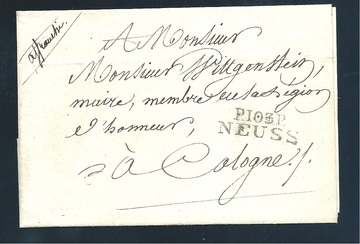 affranchi
A Monsieur
Monsieur Wittgenstein,
maire, membre de la Légion
d'honneur,
à Cologne
P.103.P
NEUSS